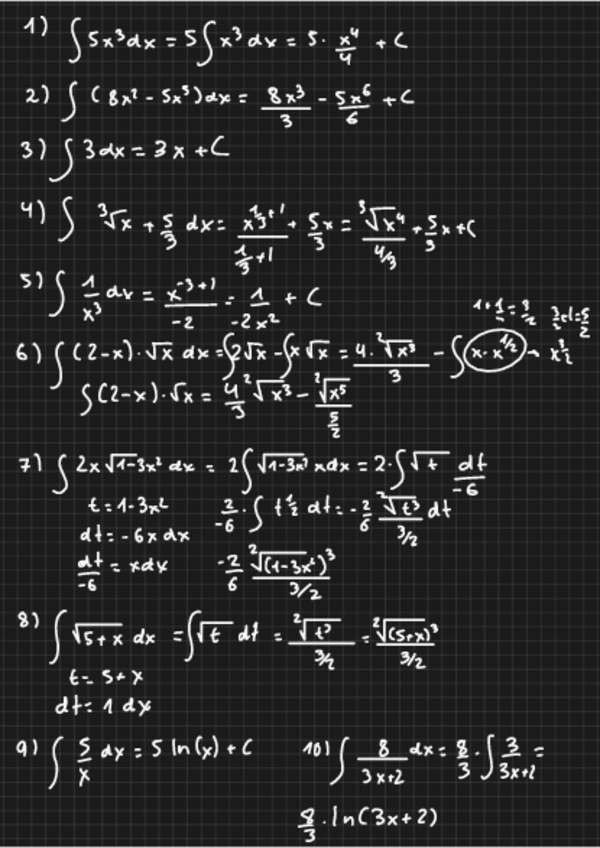 1) ∫ 5x³dx = 5∫x³dx = 5 · x⁴/4 + C
2) ∫ (8x² - 5x⁵)dx = 8x³/3 - 5x⁶/6 + C
3) ∫ 3dx = 3x + C
4) ∫ ³√x + 5/3 dx = x^(1/3+1)/(1/3+1) + 5/3 x = ³√x⁴/(4/3) + 5/3 x + C
5) ∫ 1/x³ dx = x^(-3+1)/-2 = 1/-2x² + C
1+1/2=3/2 3/2+1=5/2
6) ∫ (2-x)·√x dx = ∫2√x - ∫x√x = 4·²√x³/3 - ∫ x·x^(1/2) → x^(3/2)
∫(2-x)·√x = 4/3 ²√x³ - ²√x⁵/(5/2)
7) ∫ 2x√1-3x² dx = 2∫√1-3x² xdx = 2·∫√t dt/-6
t = 1-3x² 2/-6 · ∫ t^(1/2) dt = -2/6 ²√t³/(3/2) dt
dt = -6x dx
dt/-6 = xdx -2/6 ²√(1-3x²)³/(3/2)
8) ∫ √5+x dx = ∫√t dt = ²√t³/(3/2) = ²√(5+x)³/(3/2)
t = 5+x
dt = 1 dx
9) ∫ 5/x dx = 5 ln(x) + C
10) ∫ 8/(3x+2) dx = 8/3 · ∫ 3/(3x+2) =
8/3 · ln(3x+2)